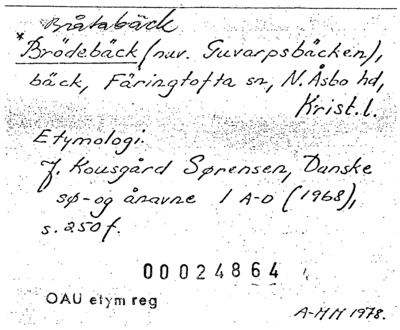 Bråtabäck
*Brödebäck (nuv. Guvarpsbäcken),
bäck, Färingtofta sn, N. Åsbo hd,
Krist. l.
Etymologi.
J. Kousgård Sørensen, Danske
sø- og ånavne 1 A-D (1968),
s. 250 f.
00024864
OAU etym reg
A-MM 1978.